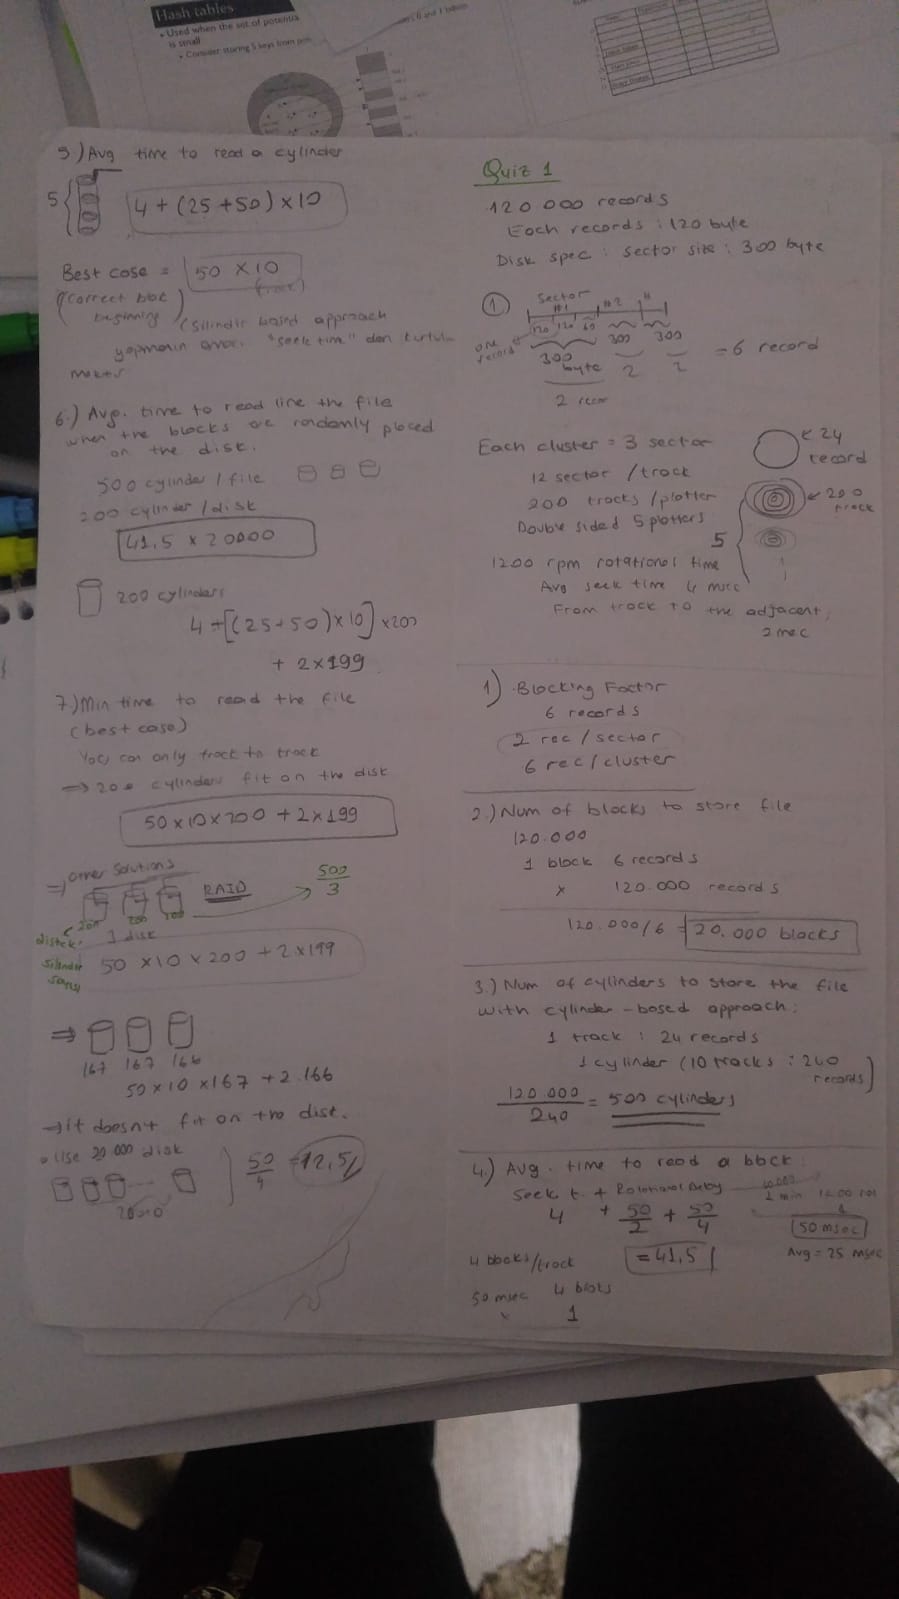 Hash tables
• Used when the set of potential
is small
• Consider storing 5 keys from
5.) Avg time to read a cylinder
5
4 + (25 + 50) x 10
Best case = 50 x 10
(correct
beginning)
(Silindir based approach
yapmanın amacı "seek time" dan kurtul-
maktır
6.) Avg. time to read line the file
when the blocks are randomly placed
on the disk.
500 cylinder / file
200 cylinder / disk
41,5 x 20000
200 cylinders
4 + [(25+50) x 10] x 200
+ 2 x 199
7.) Min time to read the file
(best case)
You can only track to track
⇒ 200 cylinders fit on the disk
50 x 10 x 200 + 2 x 199
⇒ Other solutions
RAID
500/3
200 200 100
1 disk
silindir
50 x 10 x 200 + 2 x 199
⇒
167 167 166
50 x 10 x 167 + 2.166
→ it doesn't fit on the disk.
• Use 20 000 disk
20000
50/4 = 12,5
Quiz 1
120 000 records
Each records : 120 byte
Disk spec : sector size : 300 byte
1
Sector
#1 #2
120 120 60
one record
300 byte 300 300
2 2 = 6 record
2 recor
Each cluster = 3 sector
24 record
12 sector / track
200 tracks / platter
200 track
Double sided 5 platters
5
1200 rpm rotational time
Avg seek time 4 msec
From track to the adjacent;
2 msec
1) Blocking Factor
6 records
2 rec / sector
6 rec / cluster
2.) Num of blocks to store file
120.000
1 block 6 records
x 120.000 records
120.000/6 = 20.000 blocks
3.) Num of cylinders to store the file
with cylinder-based approach;
1 track : 24 records
1 cylinder (10 tracks : 240
records)
120.000/240 = 500 cylinders
4.) Avg. time to read a block
Seek t. + Rotational Delay
4 + 50/2 + 50/4
1 min 1200 rot
1
50 msec
= 41,5
Avg = 25 msec
4 blocks/track
50 msec 4 blocks
x 1